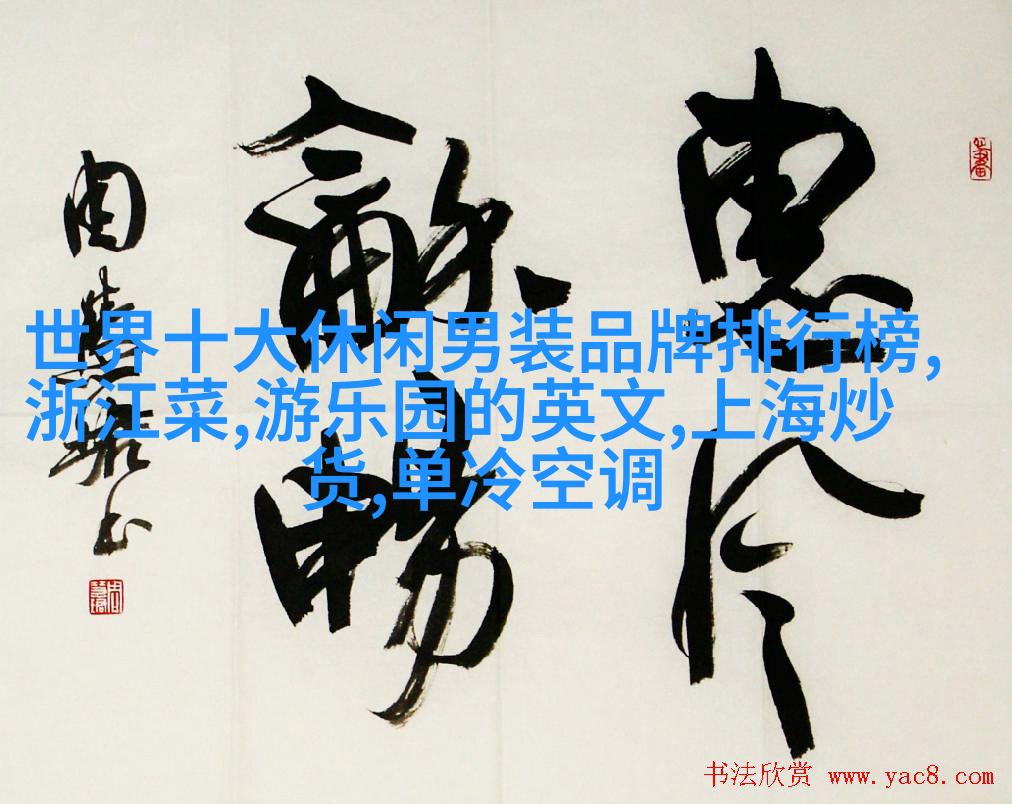 世界十大休闲男装品牌排行榜,
浙江菜,游乐园的英文,上海炒
货,单冷空调
惠风
龢暢
周慧珺书
书法欣赏 www.yac8.com